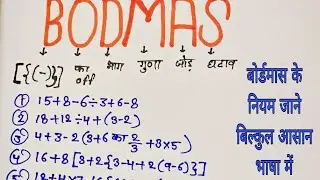 BODMAS
[{(-)}] का off भाग गुणा जोड़ घटाव
① 15+8-6÷3+6-8
② 18+12÷4+(3-2)
③ 4+3-2(3+6 का 2/3 +3×5)
④ 16+8[3+2{3-4+2(9-6)}]
बोर्डमास के
नियम जाने
बिल्कुल आसान
भाषा में